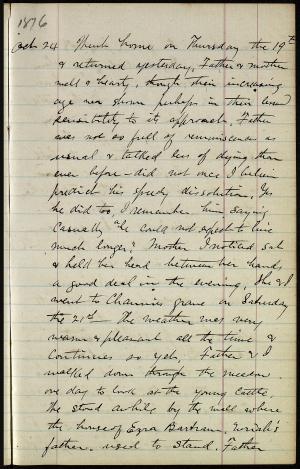 1876
Oct 24 Went home on Thursday the 19th
& returned yesterday, Father & mother
well & hearty, though their increasing
age now shown perhaps in their
sensibility to its approach. Father
was not so full of reminiscence as
usual & talked less of dying than
ever before - did not once I believe
predict his speedy dissolution. Yes
he did too, I remember him saying
casually "he could not expect to live
much longer." Mother I noticed sat
& held her head between her hands
a good deal in the evening. She & I
went to Channies grave on Saturday
the 21st - The weather was very
warm & pleasant all the time &
continues so yet. Father & I
walked down through the meadow
one day to look at the young cattle.
We stood awhile by the well where
the house of Ezra Bartram, Uriah's
father, used to stand. Father